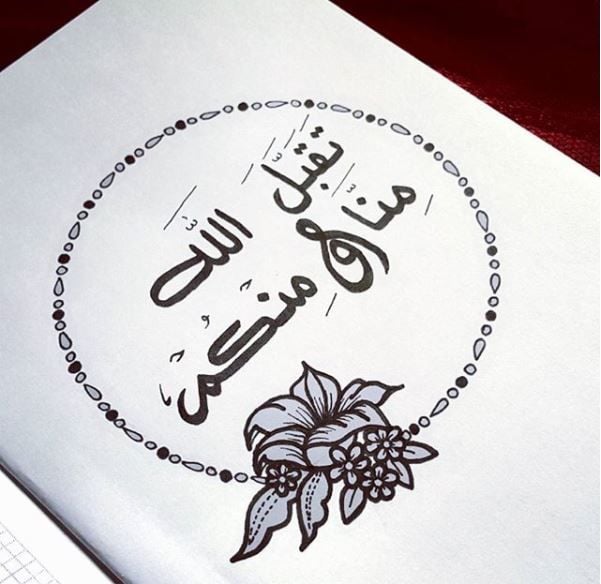 تقبّل اللّه
منّا و منكم